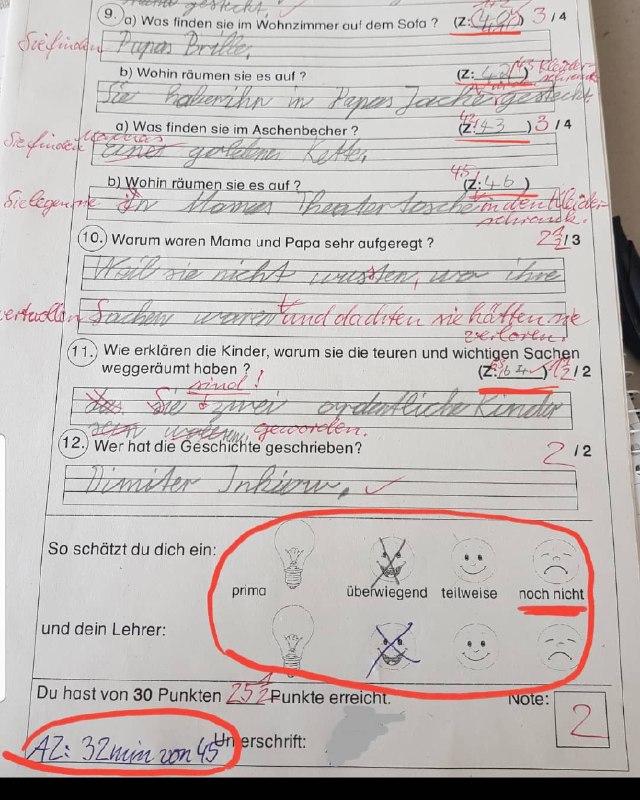 9. a) Was finden sie im Wohnzimmer auf dem Sofa ? (Z: ) 3 / 4
Sie finden Papas Brille.
b) Wohin räumen sie es auf ? (Z: )
Sie haben ihn in Papas Jacke gesteckt
a) Was finden sie im Aschenbecher ? (Z: 43 ) 3 / 4
Sie finden Mamas
einer goldene Kette.
b) Wohin räumen sie es auf ? 45 (Z: 46 )
Sie legen sie in Mamas Theatertasche in den Kleider-
schrank.
10. Warum waren Mama und Papa sehr aufgeregt ? 2 1/2 / 3
Weil sie nicht wussten, wo ihre
wertvollen Sachen waren und dachten sie hätten sie
verloren.
11. Wie erklären die Kinder, warum sie die teuren und wichtigen Sachen
weggeräumt haben ? (Z: 64 ) 1/2 / 2
sind!
das Sie zwei ordentliche Kinder
geworden.
12. Wer hat die Geschichte geschrieben? 2 / 2
Dimiter Inkiow.
So schätzt du dich ein:
prima überwiegend teilweise noch nicht
und dein Lehrer:
Du hast von 30 Punkten 25 1/2 Punkte erreicht. Note: 2
AZ: 32 min von 45 Unterschrift: